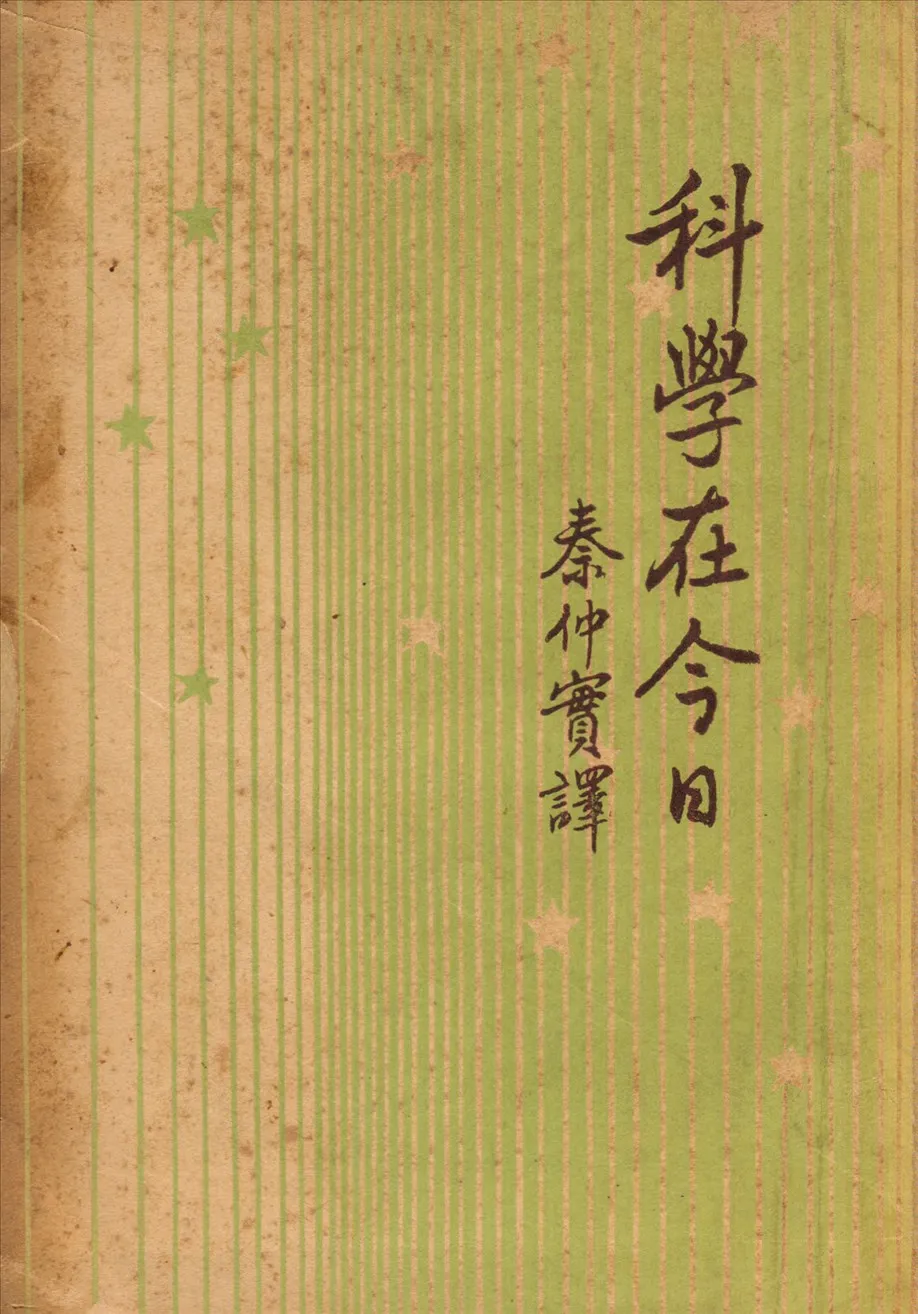 科學在今日
秦仲實譯